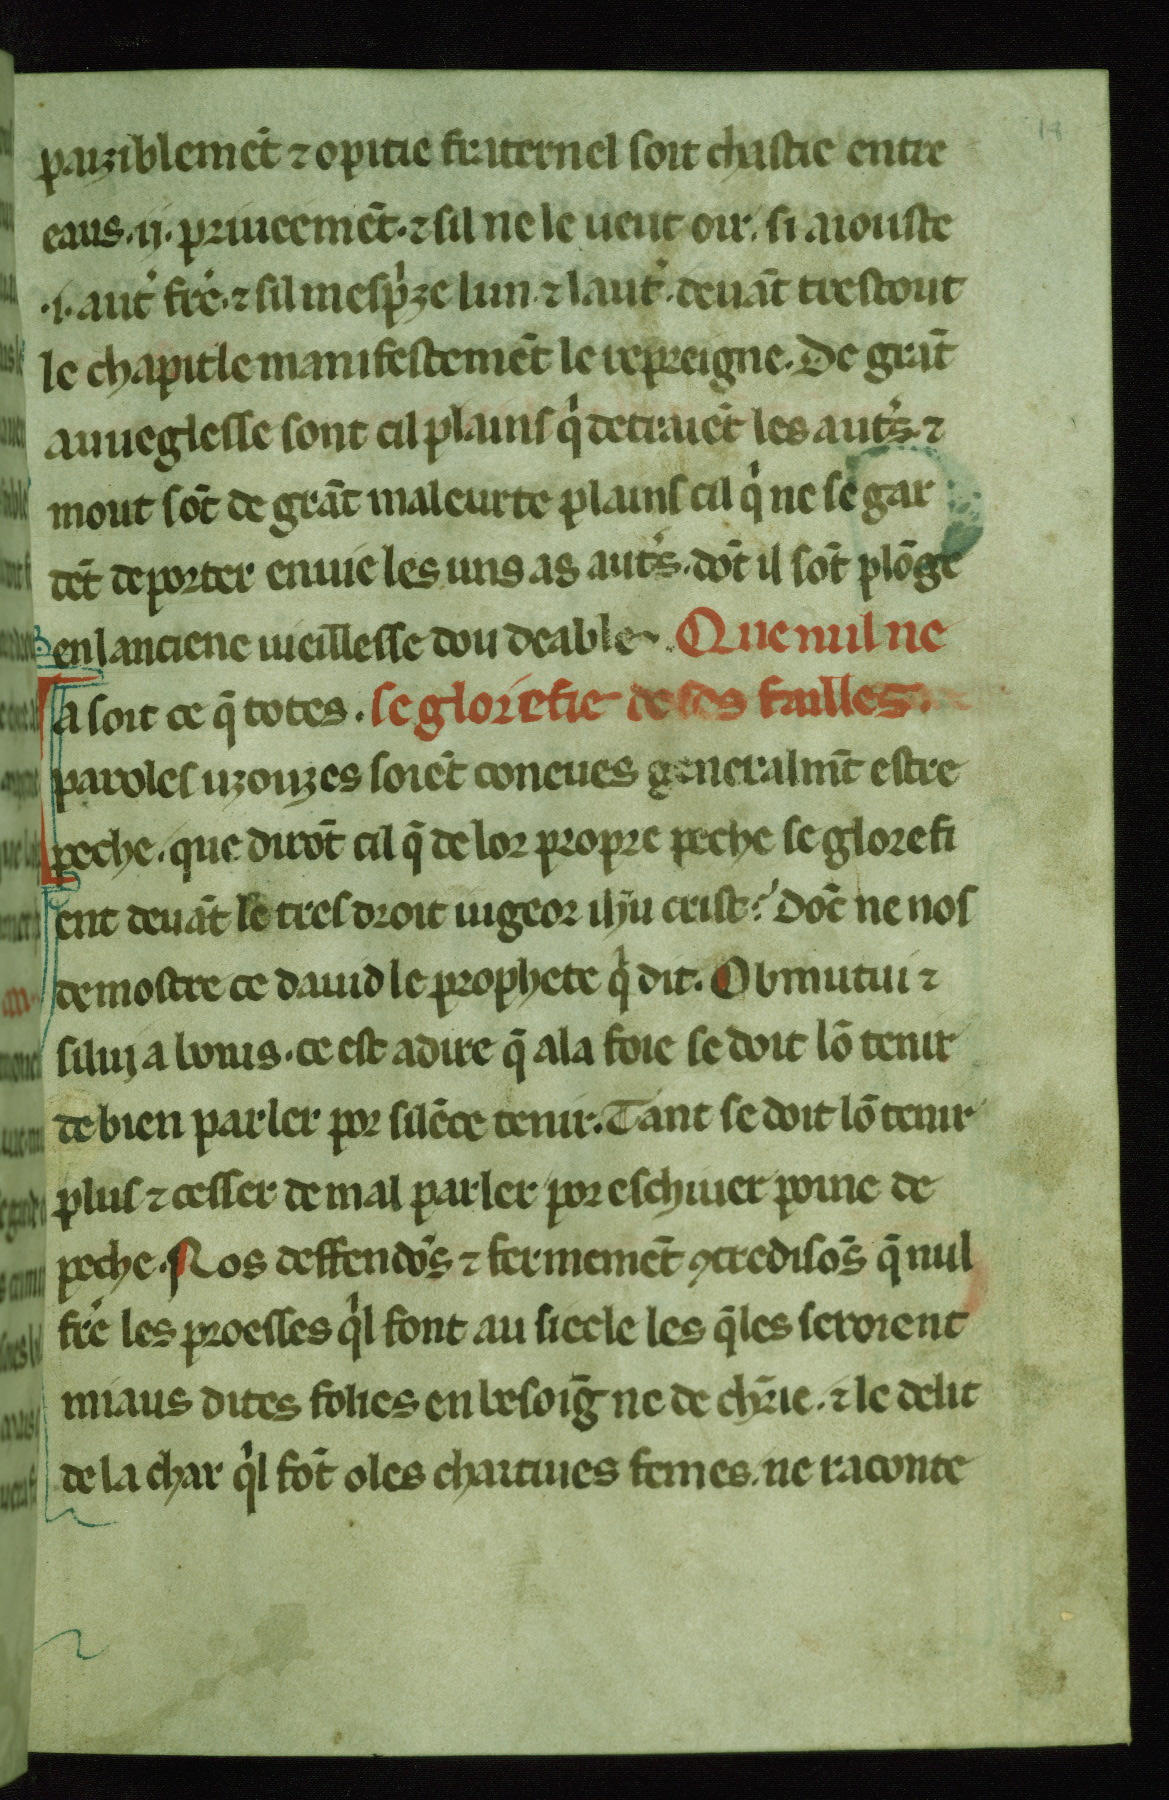 14
pauziblemēt ⁊ o pitie fraternel soit chastie entre
eaus .ij. priueemēt. ⁊ sil ne le ueut oir. si aiouste
.i. aut᾽ fre᾽. ⁊ sil mesp᾽ze lun ⁊ laut᾽. deuāt trestout
le chapitle manifestemēt le repreigne. De grāt
auueglesse sont cil plains q᾽ detraiēt les aut᾽s. ⁊
mout sōt de grāt maleurte plains cil q᾽ ne se gar
dēt de porter enuie les uns as aut᾽s. dōt il sōt plōge
en lanciene uieillesse dou deable. Que nul ne
Ia soit ce q̄ totes. se glorefie de ses failles.
paroles uzouzes soiēt coneues generalmt̄ estre
peche. que dirōt cil q̄ de lor propre peche se glorefi
ent deuāt le tres droit iugeor ihū crist? Dōc ne nos
demostre ce dauid le prophete q᾽ dit. Obmutui ⁊
siluj a bonis. ce est a dire q̄ a la foie se doit lō tenir
de bien parler por silēce tenir. Tant se doit lō tenir
plus ⁊ cesser de mal parler por eschiuer poine de
peche. Nos deffendōs ⁊ fermemēt ꝯtredisōs q̄ nul
fre᾽ les proesses q᾽l font au siecle les q̄les seroient
miaus dites folies en besoiḡne de chr̄ie. ⁊ le delit
de la char q᾽l fōt o les chaitiues femes. ne raconte